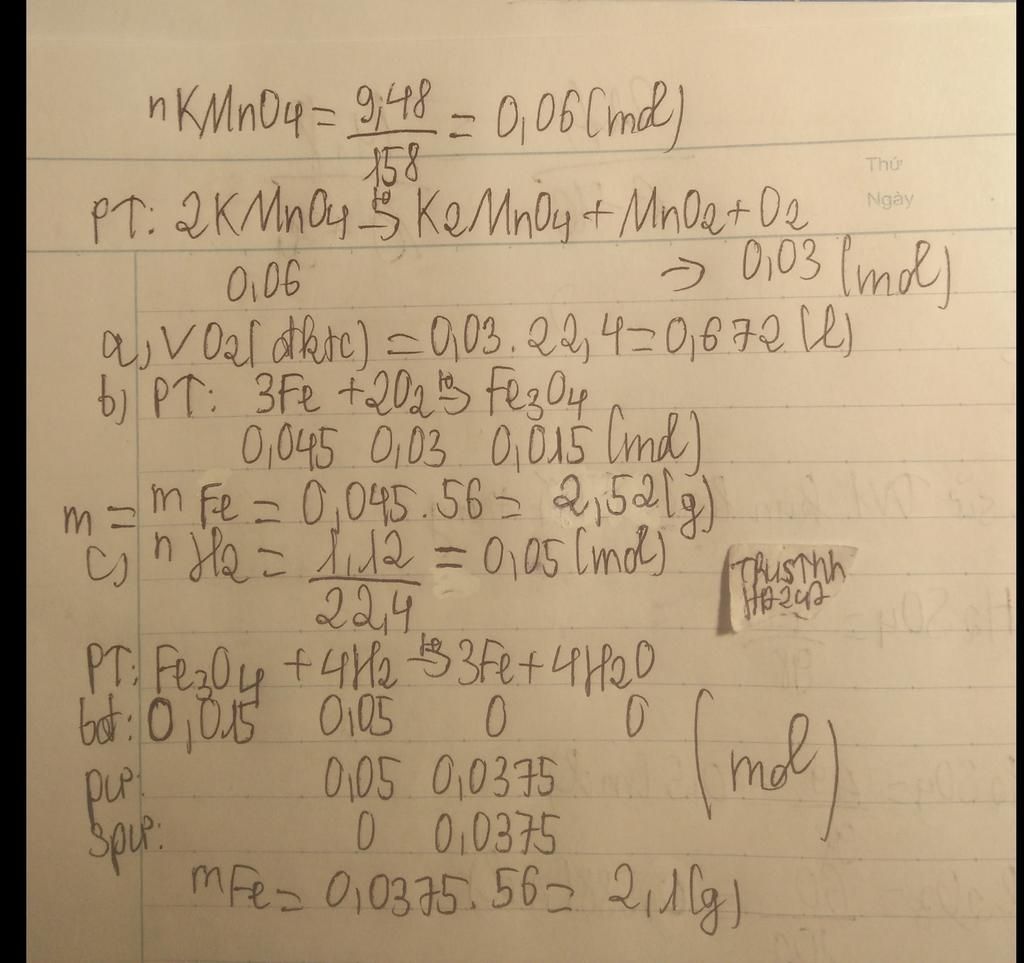 nKMnO4 = 9,48/158 = 0,06 (mol)
Thứ
Ngày
PT: 2KMnO4 t0→ K2MnO4 + MnO2 + O2
0,06 → 0,03 (mol)
a, VO2 (đktc) = 0,03 . 22,4 = 0,672 (l)
b) PT: 3Fe + 2O2 t0→ Fe3O4
0,045 0,03 0,015 (mol)
m = mFe = 0,045 . 56 = 2,52 (g)
c, nH2 = 1,12/22,4 = 0,05 (mol)
TRUSTNN
HA247
PT: Fe3O4 + 4H2 t0→ 3Fe + 4H2O
bđ: 0,015 0,05 0 0 (mol)
pư: 0,05 0,0375
spư: 0 0,0375
mFe = 0,0375 . 56 = 2,1 (g)